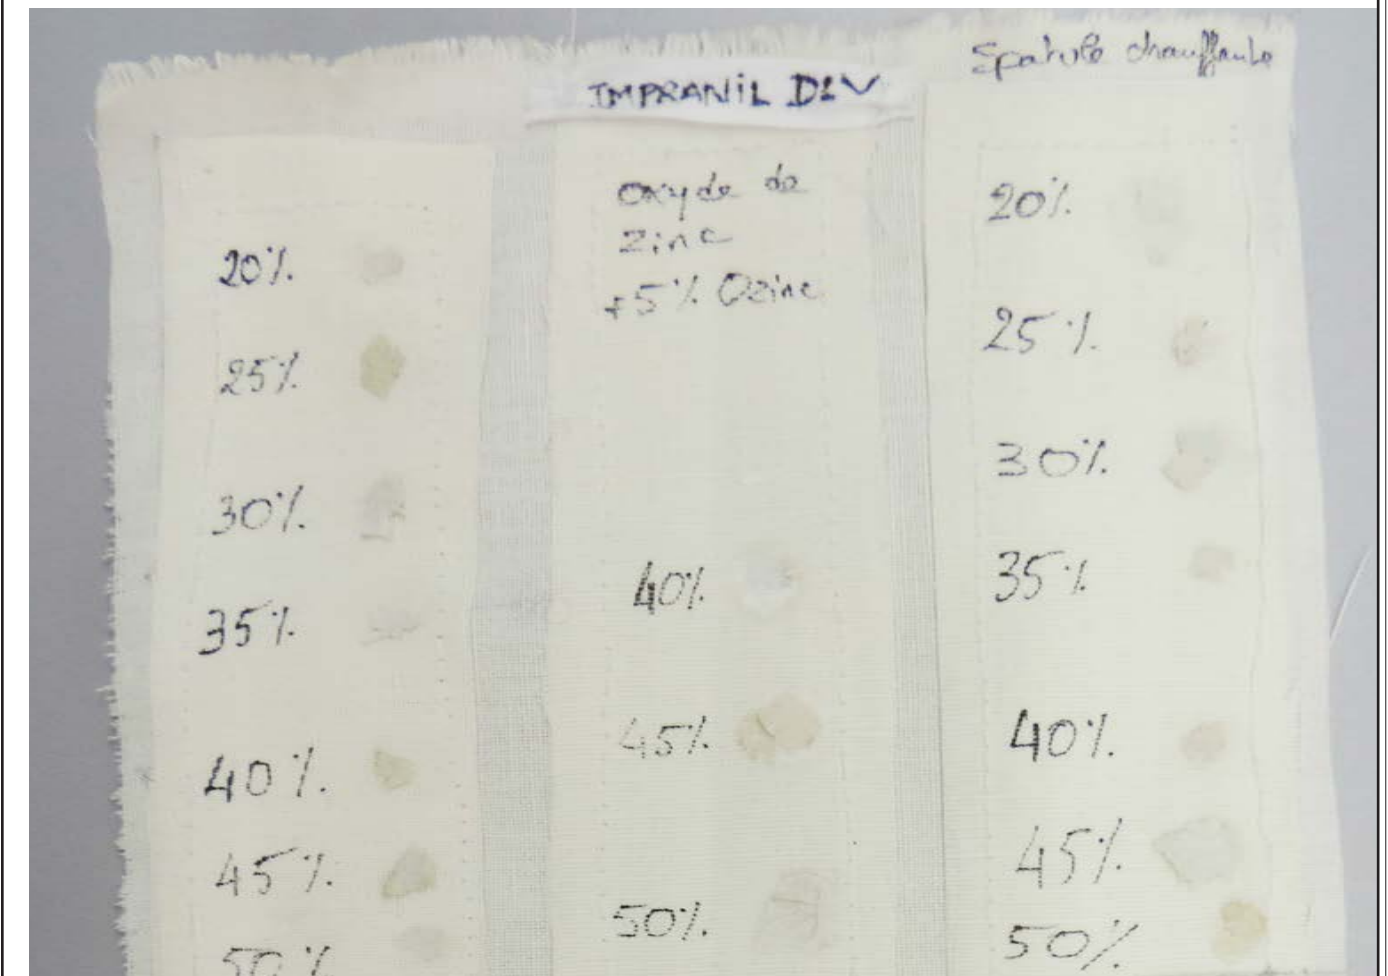 IMPRANIL DLV
Spatule chauffante
20%
25%
30%
35%
40%
45%
50%
oxyde de
zinc
+5% Ozinc
40%
45%
50%
20%
25%
30%
35%
40%
45%
50%